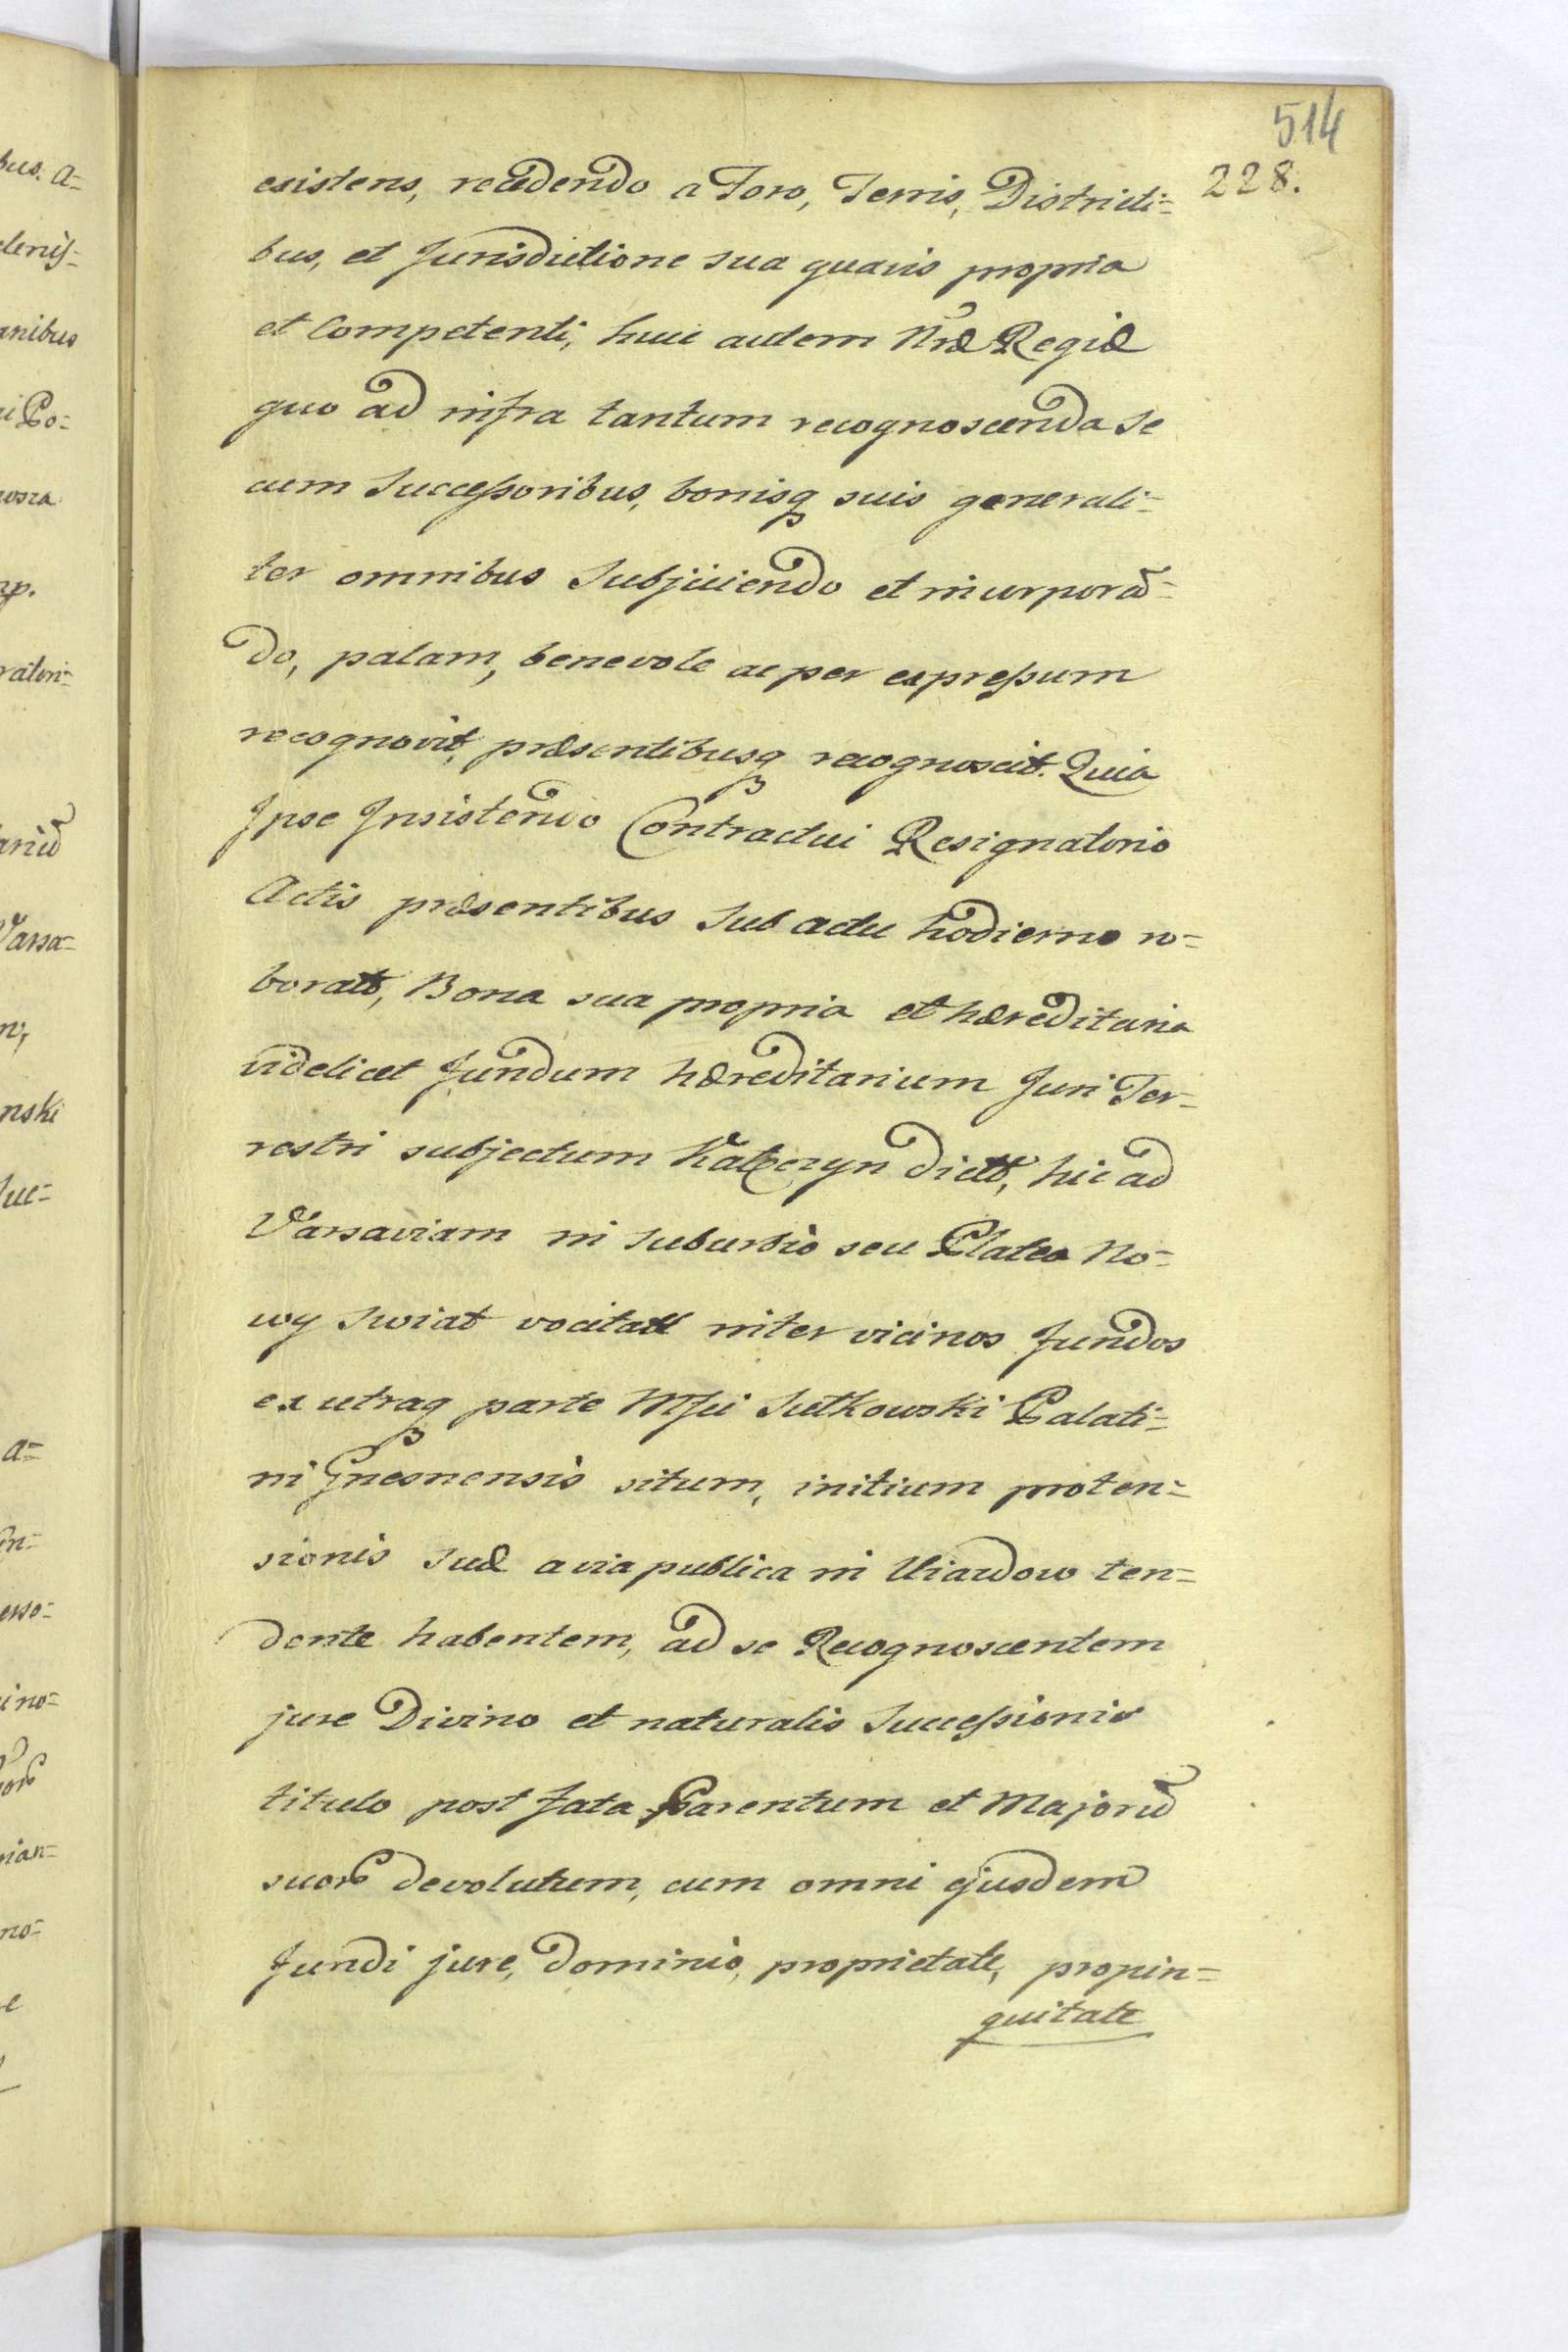 514
228.
existens, recedendo a Foro, Terris, Districti=
bus, et Jurisdictione sua quavis propria
et Competenti, huic autem Nræ Regiæ
quo ad infra tantum recognoscenda se
cum Successoribus, bonisq suis generali=
ter omnibus Subjiciendo et incorporã=
do, palam, benevole ac per expressum
recognovit, præsentibusq recognoscit. Quia
Ipse Insistendo Contractui Resignatorio
Actis præsentibus Sub actu hodierno ro=
borato, Bona sua propria et hæreditaria
videlicet Fundum hæreditarium Juri Ter=
restri subjectum Kałęczyn dictũ, hic ad
Varsaviam in suburbio seu Platea No=
wy Swiat vocitata inter vicinos Fundos
ex utraq parte Mfci Sułkowski Palati=
ni Gnesnensis situm, initium proten=
sionis suæ a via publica in Uiazdow ten=
dente habentem, ad se Recognoscentem
jure Divino et naturalis Successionis
titulo post Fata Parentum et Majorũ
suor devolutum, cum omni ejusdem
Fundi jure, Dominio, proprietate, propin=
quitate